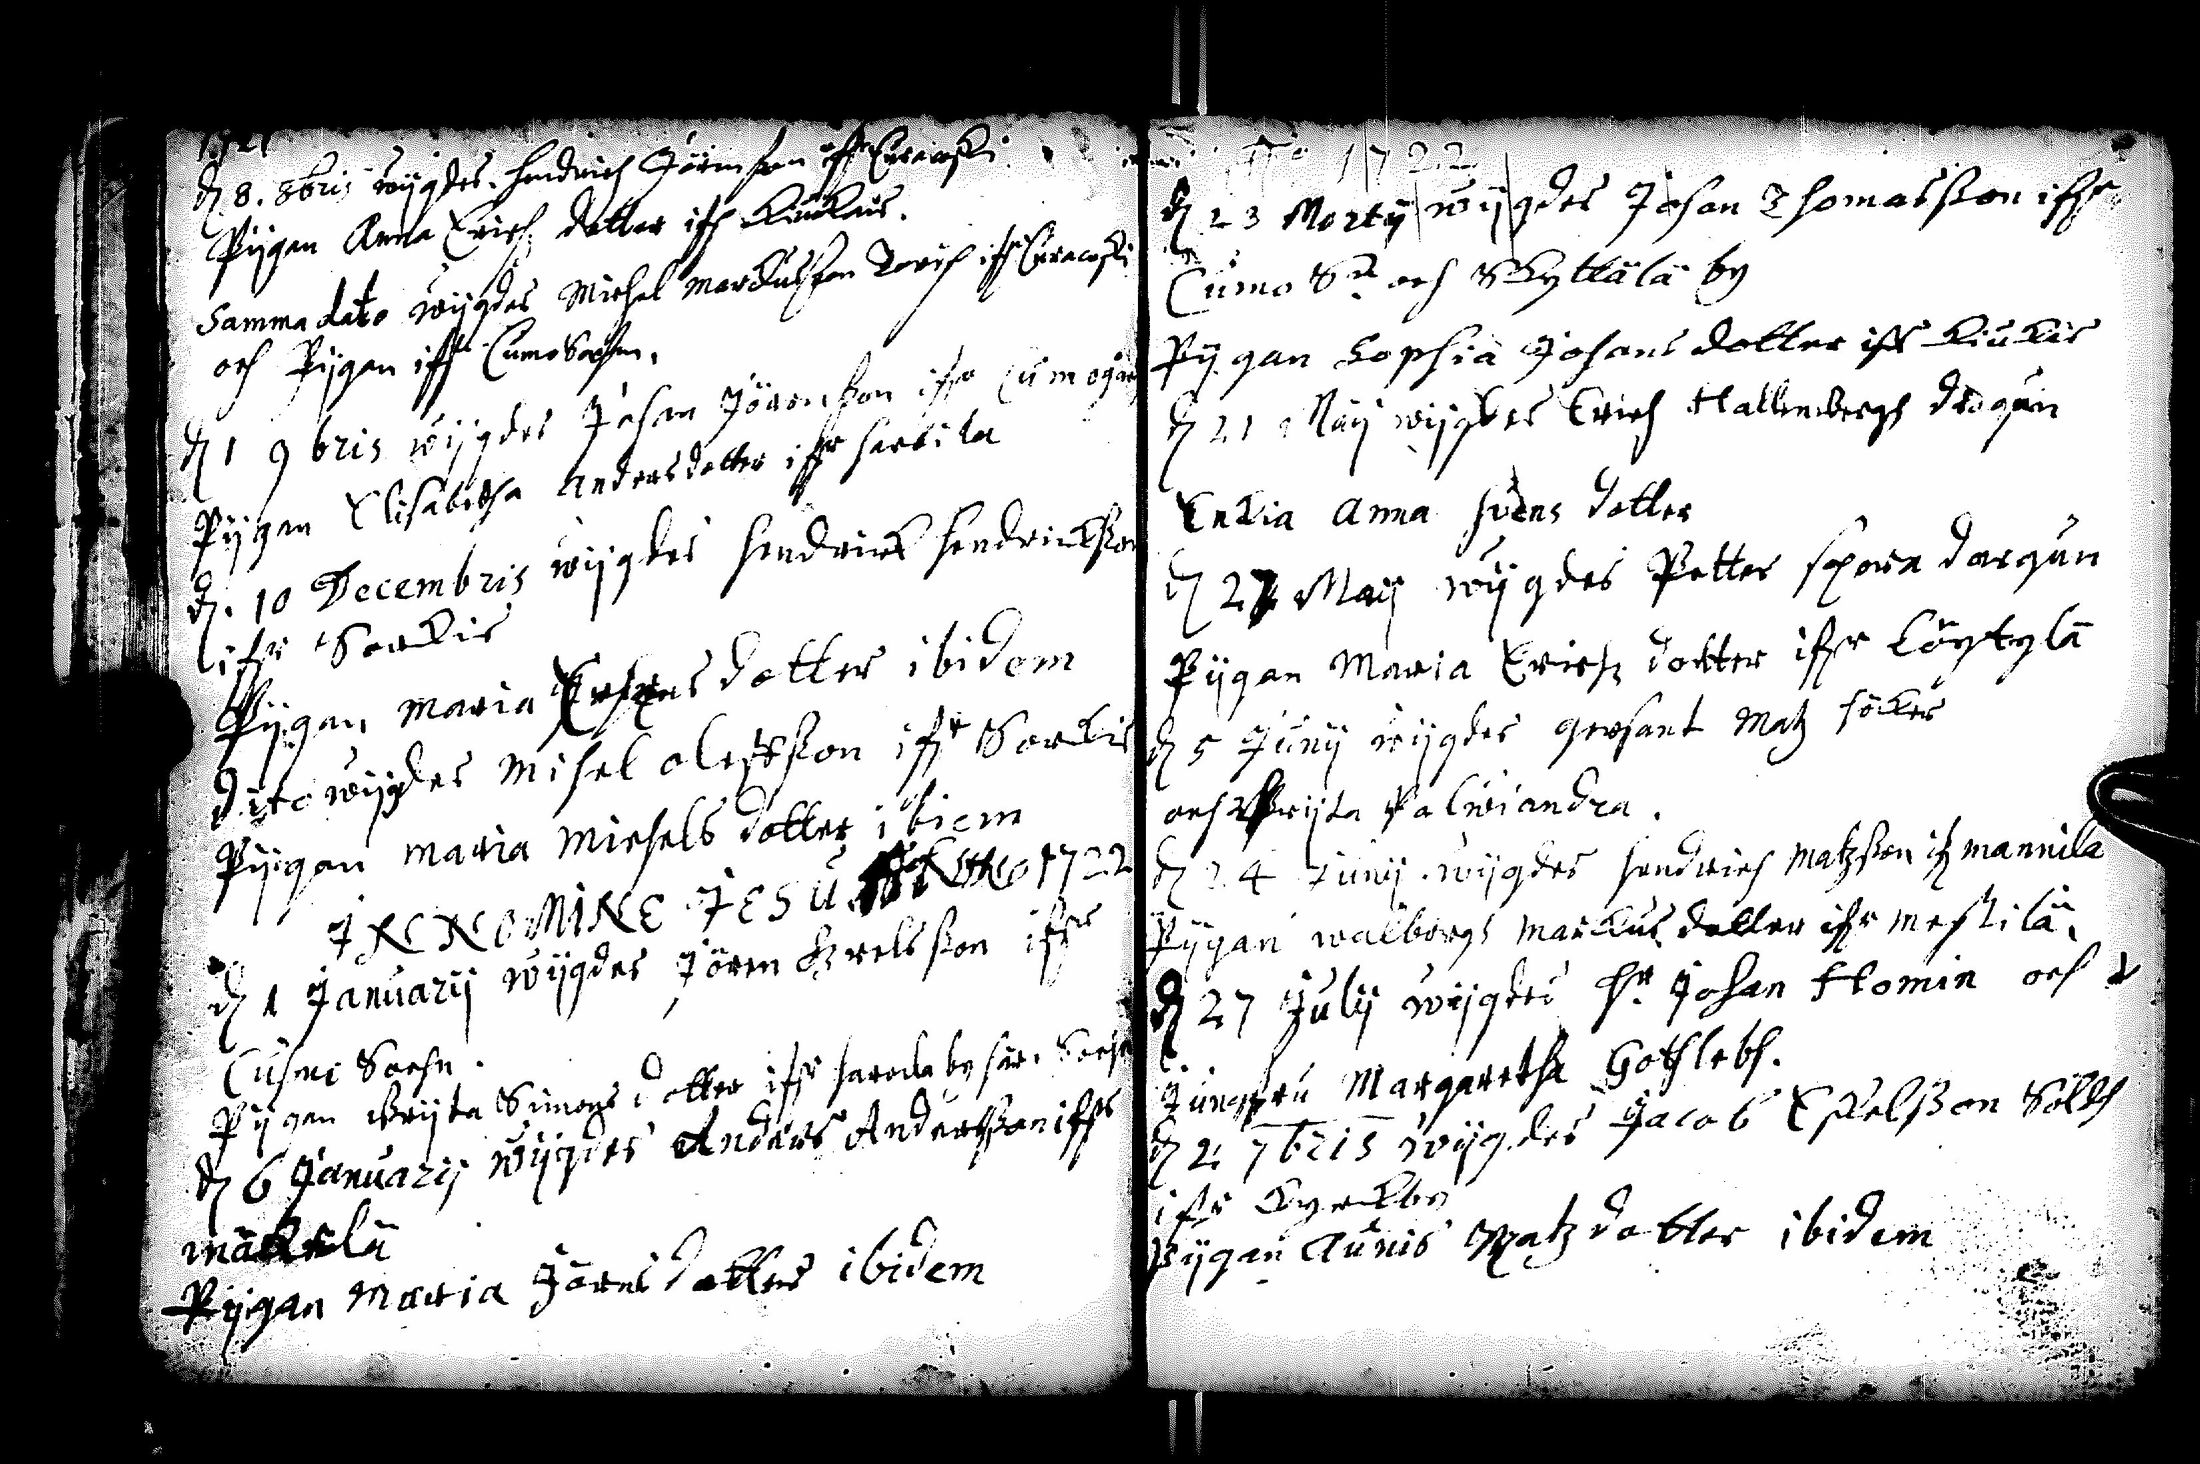 1721
d 8. 8bris wijgdes. Hendrich Jörensson ifr Euraåski
Pijgan Anna Erichz dotter ifr Kiukais.
Samma dato wijgdes Michel Marckusson ifr Euraåski
och Pijgan ifr Cumo Sochn.
d 1 9bris wijgdes Johan Jörensson ifr Cumogår
Pijgan Elisabetha Andersdotter ifr Harbila
d. 10 Decembris wijgdes Hendrick Hendricksson
ifr Sorckis
Pijgan Maria dotter ibidem
Dito wijgdes Mihel olefsson ifr Sorckis
Pijgan Maria Michels dotter ibiem
IN NOMINE JESU 1722
d 1 Januarij wijgdes Jören ifr
Cuhmo Sochn.
Pijgan Brijta Simons dotter ifr by
d 6 Januarij wijgdes Anders Andersson ifr
Pijgan Maria Jörns dotter ibidem
1722
d 23 Marty wijgdes Johan Thomasson ifr
Cumo Sn och Skyttälä by
Pijgan Sophia Johans dotter ifr Kiukis
d 21 Maij wijgdes Erich Hallenbergh dragun
Enkia Anna Svens dotter
d 27 Maij wijgdes Petter spora dargun
Pijgan Maria Erichz dotter ifr Löytylä
d 5 Junij wijgdes gersant Matz
och Brijta Palwiandra.
d 24 Junij wijgdes Hendrich Matzson if Mannila
Pijgan Walborgh Marckus dotter ifr Mestilä.
d 27 Julij wijgdes Hr Johan Homin och
Jungfru Margaretha Gothlebh.
d 2 7bris wijgdes Jacob Eskelsson
ifr Kyrckby
Pijgan Aunis Matz dotter ibidem